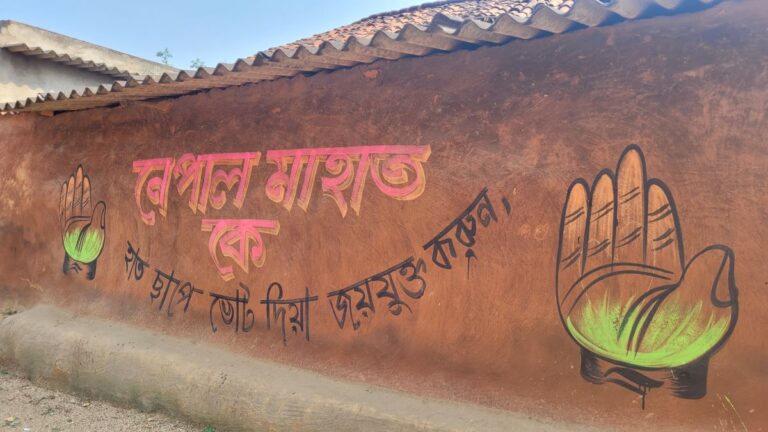 নেপাল মাহাত
কে
হাত ছাপে ভোট দিয়া জয়যুক্ত করুন,